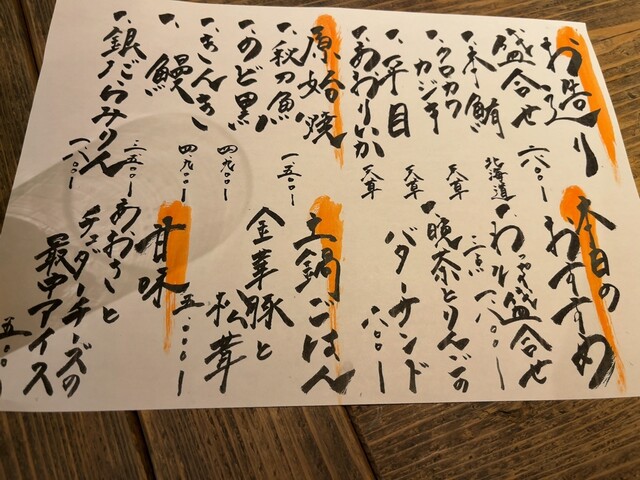 お造り
盛合せ 一六〇〇ー
一、本鮪 北海道
一、クロカワカジキ 天草
一、平目 天草
一、あおりいか 天草
原始焼
一、秋刀魚 一五〇〇ー
一、のど黒
一、きんき 四九〇〇ー
一、鰻 四九〇〇ー
一、銀だらみりん 一八〇〇ー
本日の
おすすめ
盛合せ 一八〇〇ー
一、晩茶とりんごの
バターサンド 六〇〇ー
土鍋ごはん
金華豚と
松茸 五〇〇〇ー
甘味
あおさと
チェダーチーズの
最中アイス